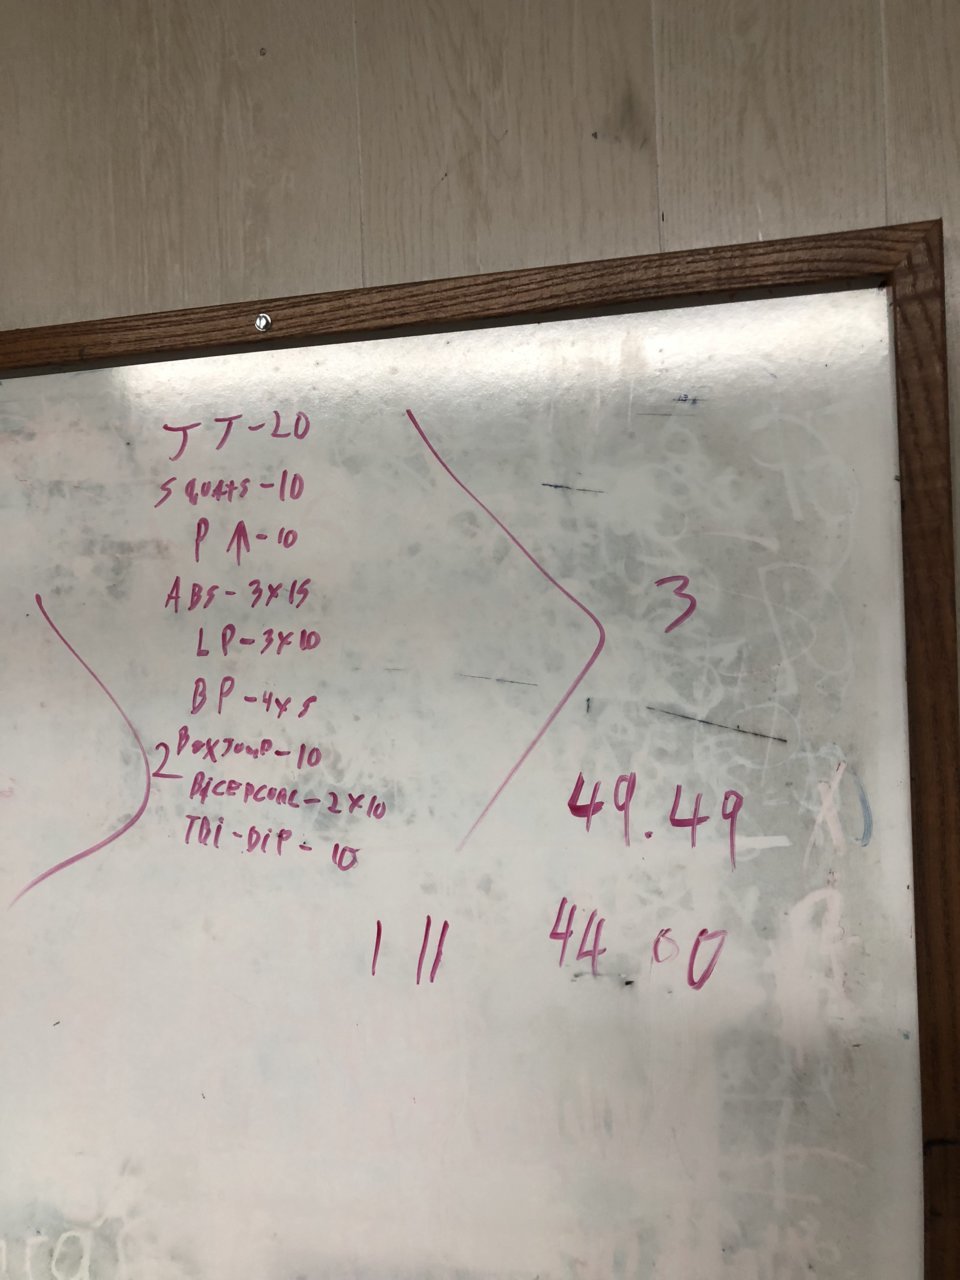 JJ-20
Squats-10
P ↑-10
ABS-3x15
LP-3x10
BP-4x5
2
BoxJump-10
BICEPCURL-2x10
TRi-DiP-10
3
49.49
111
44.00